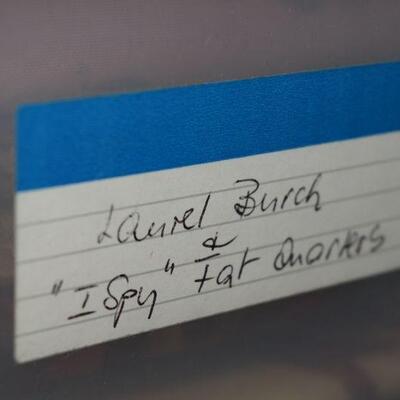 Laurel Burch
&
"I Spy" fat Quarters